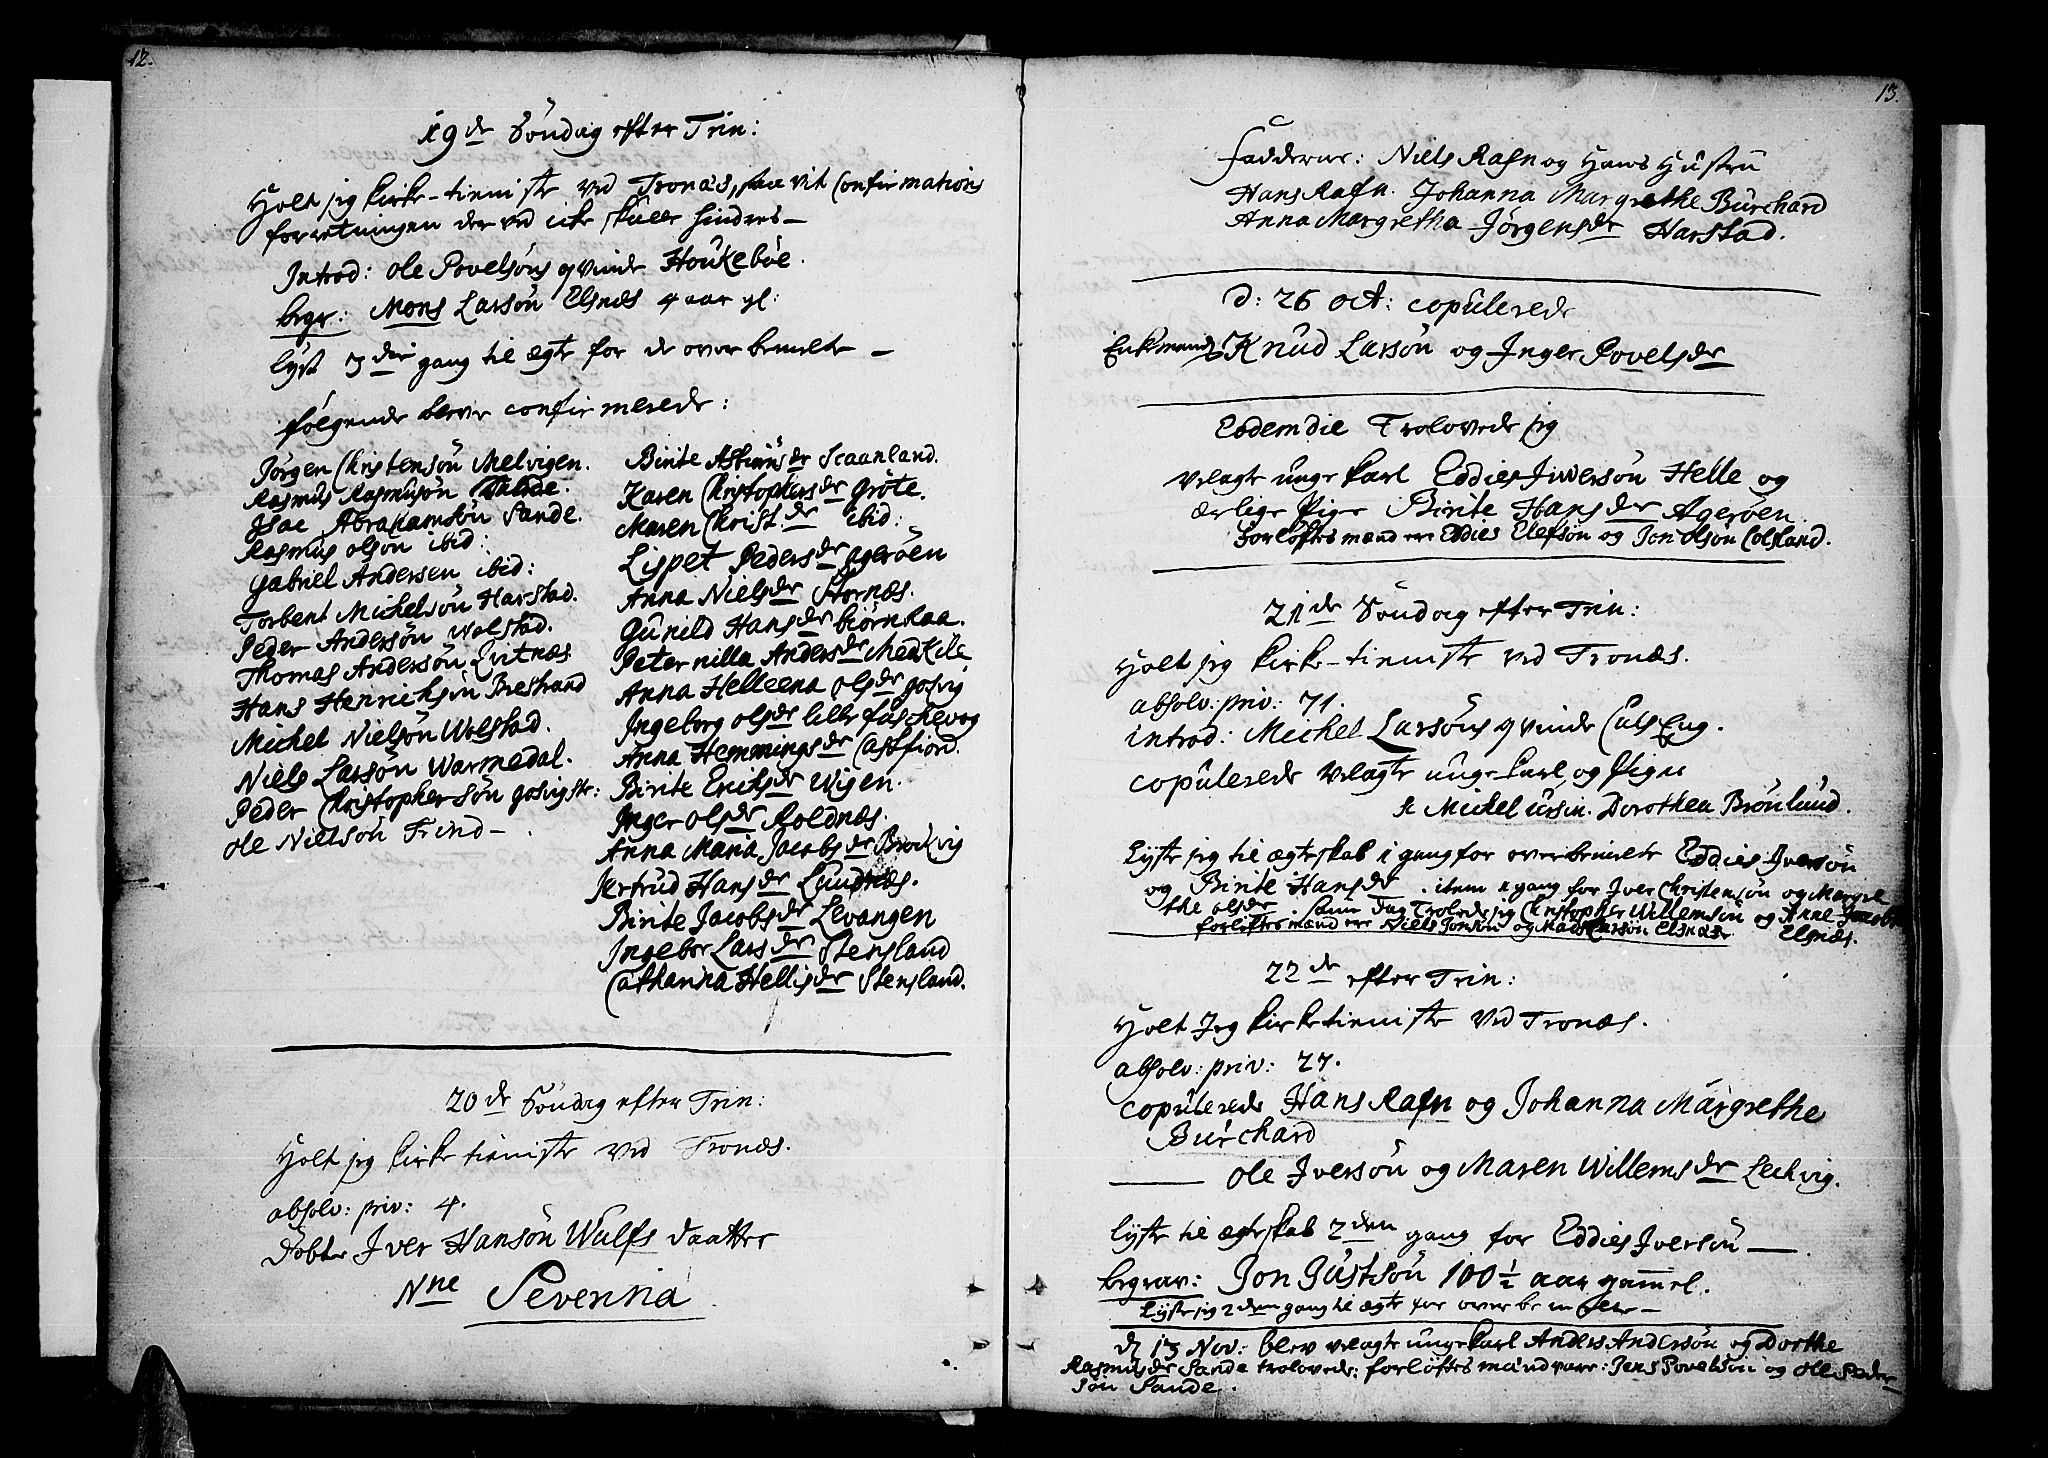 12.
19de Söndag efter Trin:
Holt jeg kirke-tieniste ved Tronæs, saa vit Confirmations
forretningen der ved icke skulle hindres-
Introd: Ole Povelsöns qvinde Houkeböe.
begr: Mons Larsön Elgnæs 4 aar gl:
lyst 3die gang til ægte for de over bemelte -
fölgende bleve confirmerede:
Jörgen Christensön Melvigen.
Rasmus Rasmusön
Isac Abrahamsön Sande.
Rasmus olsön ibid:
Gabriel Andersen ibid:
Torbent Michelsön Harstad.
Peder Andersön Wolstad.
Thomas Andersön Qvitnæs
Hans Henrichsön Brestrand
Michel Nielsön Wolstad.
Niels Larsön Warmedal.
Peder Christophersön
Ole Nielsön Trind-
Birite dr Scaanland.
Karen Christophersdr Gröte.
Maren Christ.dr ibid:
Lispet Pedersdr Ageröen
Anna Nielsdr Stornæs.
Gunild Hansdr biörnRaa.
Peternilla Andersdr Medkile
Anna Helleena olsdr gosvig
Ingeborg olsdr lille fuschevog
Anna Hemmingsdr Castfiord.
Birite Erichsdr Wigen.
Inger olsdr Roldnæs.
Anna Maria Jacobsdr Brockvig
Jertrud Hansdr Lundnæs.
Birite Jacobsdr Levangen
Ingebor Larsdr Stensland
Catharina Hellisdr Stensland.
20de Söndag efter Trin:
Holt jeg kirke tieniste ved Tronæs.
absolv: priv: 4.
Döbte Iver Hansön Wulfs daatter
Nne Severina
13.
Fadderne: Niels Rafn og Hans Hustru
Hans Rafn. Johanna Margrethe Burchard
Anna Margretha Jörgensdr Harstad.
d: 26 oct: copulerede
Enkemand Knud Larsön og Inger Povelsdr
Eodem die Trolovede jeg
velagte unge karl Eddies Iversön Helle og
ærlige Pige Birite Hansdr Ageröen.
Forlöftes mænd ere Eddies Elefsön og Jon olsön
21de Söndag efter Trin:
Holt jeg kirke-tieniste ved Tronæs.
absolv: priv: 71.
introd: Michel Larsöns qvinde
copulerede velagte unge karl og Pige
Michel Ursin. Dorothea Brönlund.
lyste jeg til ægteskab 1 gang for overbemelte Eddies Iversön
og Birite Hansdr. item 1 gang for Iver Christensön og Margre
the olsdr. samme dag Trolovede jeg Christopher Willemsön og Anne Jacobs
forlöftes mænd ere Niels Jonsön og Mads Larsön Elgnæs. Elgnæs.
22de efter Trin:
Holt Jeg kirketieniste ved Tronæs.
absolv: priv: 27.
copulerede Hans Rafn og Johanna Margrethe
Burchard
— Ole Iversön og Maren Willemsdr Leckvig.
lyste til ægteskab 2den gang for Eddies Iversön —.
begrav: Jon Justsön 100½ aar gammel.
lyste jeg 2den gang til ægte for over bemelte -
d 13 Nov: blev velagte unge karl Anders Andersön og Dorthe
Rasmusdr Sande trolovede: forlöftes mænd vare: Jens Povelsön og Ole Peder
sön Sande.